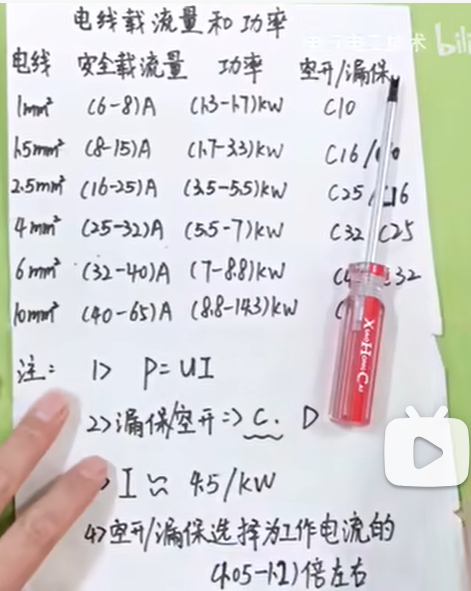 电线载流量和功率
bili
电线 安全载流量 功率 空开/漏保
1mm² (6-8)A (1.3-1.7)kW C10
1.5mm² (8-15)A (1.7-3.3)kW C16/
2.5mm² (16-25)A (3.5-5.5)kW C25/C16
4mm² (25-32)A (5.5-7)kW C32 C25
6mm² (32-40)A (7-8.8)kW 32
10mm² (40-65)A (8.8-14.3)kW
注: 1> P=UI
2>漏保/空开=> C. D
I≈ 4.5/kW
4>空开/漏保选择为工作电流的
(1.05-1.2)倍左右
XIAO HONG CAI